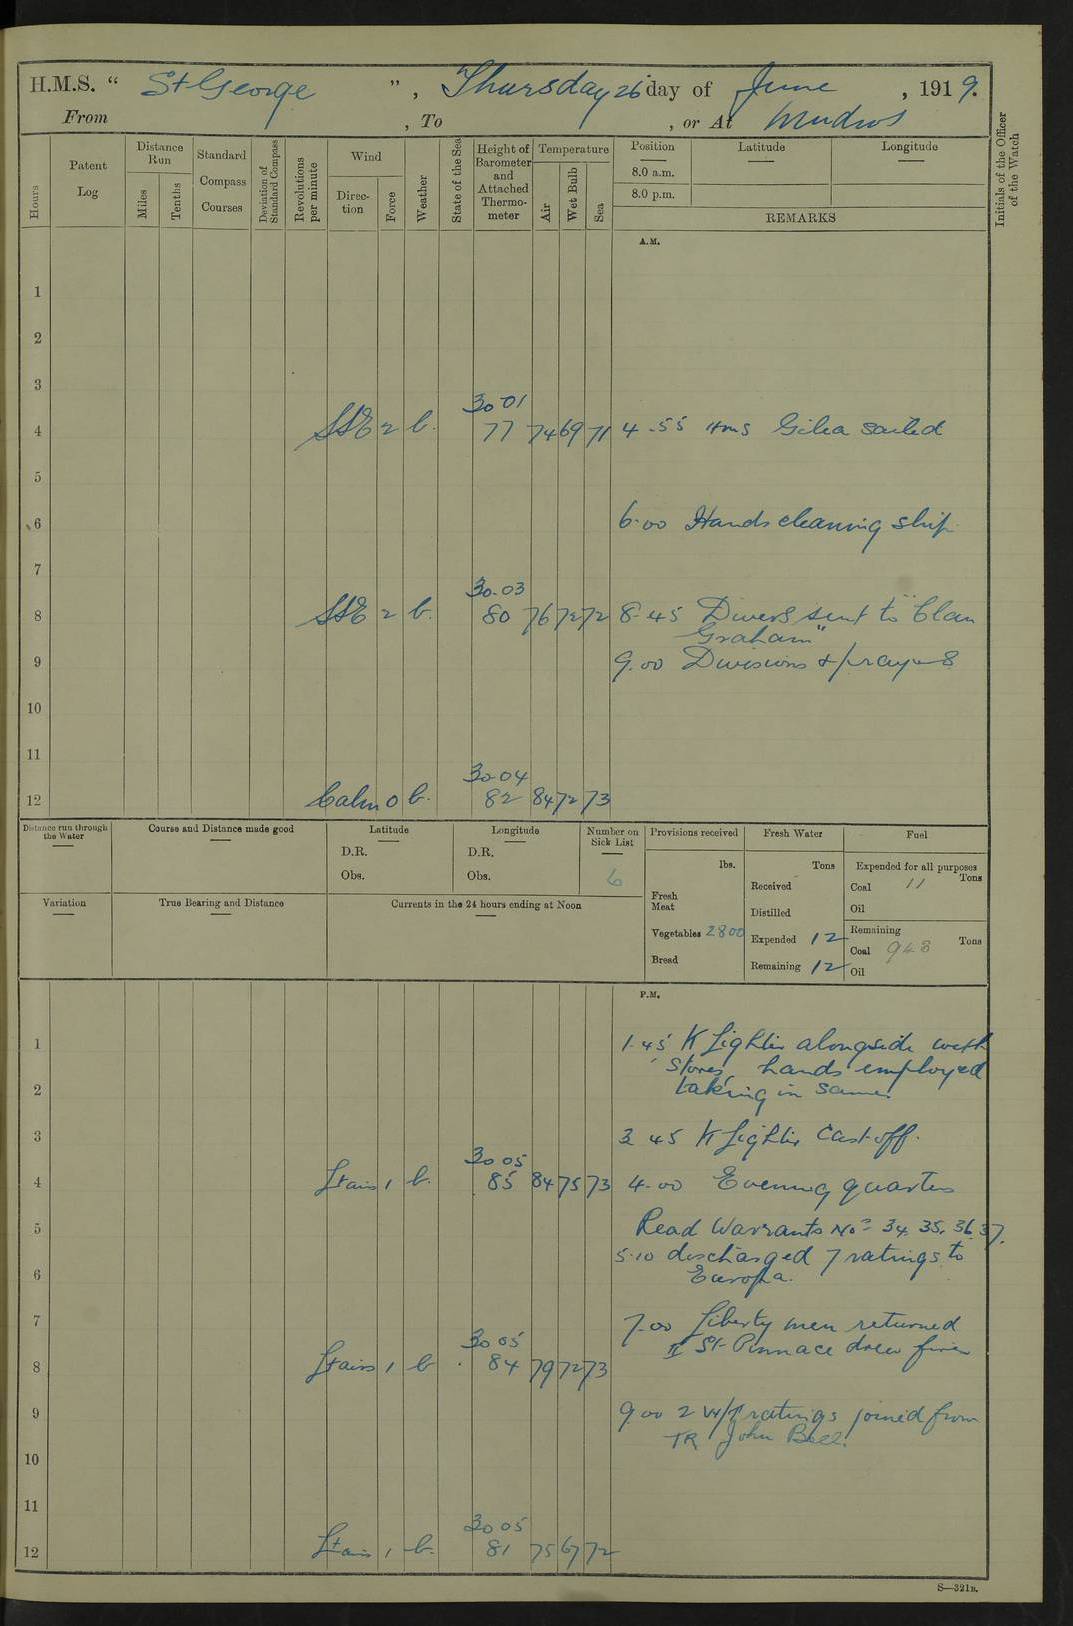 H.M.S. “ St George ”, Thursday 26 day of June, 1919.
From , To , or At Mudros
Hours
Patent Log
Distance Run
Miles
Tenths
Standard Compass Courses
Deviation of Standard Compass
Revolutions per minute
Wind
Direction
Force
Weather
State of the Sea
Height of Barometer and Attached Thermometer
Temperature
Air
Wet Bulb
Sea
Position
Latitude
Longitude
8.0 a.m.
8.0 p.m.
REMARKS
Initials of the Officer of the Watch
A.M.
1
2
3
30 01
4 SSE 2 b. 77 74 69 71 4-55 HMS sailed
5
6 6.00 Hands cleaning ship
7
30.03
8 SSE 2 b. 80 76 72 72 8-45 Divers sent to "Clan
Graham"
9 9.00 Divisions & prayers
10
11
30-04
12 Calm 0 b. 82 84 72 73
Distance run through the Water
Course and Distance made good
Latitude
D.R.
Obs.
Longitude
D.R.
Obs.
Number on Sick List
6
Provisions received
lbs.
Fresh Meat
Vegetables 2800
Bread
Fresh Water
Tons
Received
Distilled
Expended 12
Remaining 12
Fuel
Expended for all purposes
Coal 11 Tons
Oil
Remaining
Coal 948 Tons
Oil
Variation
True Bearing and Distance
Currents in the 24 hours ending at Noon
P.M.
1 1.45 K Lighter alongside with
stores, hands employed
2 taking in same.
3 3 45 K Lighter Cast off.
30 05
4 Lt airs 1 b. 85 84 75 73 4.00 Evening quarters
5 Read Warrants Nos 34, 35, 36, 37.
5.10 discharged 7 ratings to
6 Europa.
7 7.00 Liberty men returned
30 05 II St Pinnace drew fires
8 Lt airs 1 b 84 79 72 73
9 9.00 2 W/T ratings joined from
TR John Bell.
10
11
30 05
12 Lt airs 1 b. 81 75 67 72
S—321B.